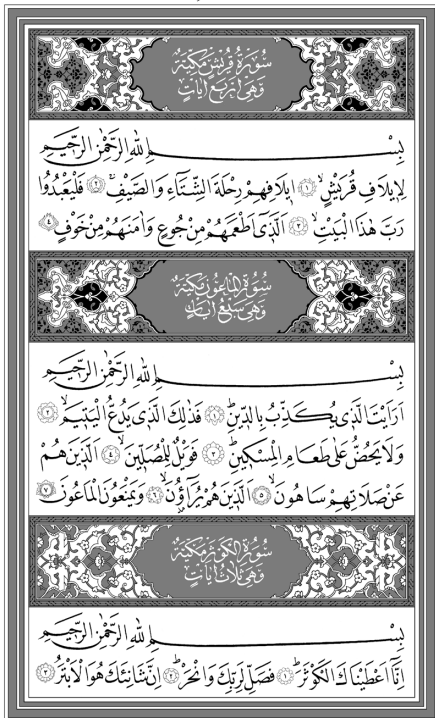 سُورَةُ قُرَيْشٍ مَكِّيَّةٌ
وَهِيَ اَرْبَعُ اٰيَاتٍ
بِسْمِ اللهِ الرَّحْمٰنِ الرَّحِيمِ
لِا۪يلَافِ قُرَيْشٍۙ ﴿١﴾ ا۪يلَافِهِمْ رِحْلَةَ الشِّتَٓاءِ وَالصَّيْفِۚ ﴿٢﴾ فَلْيَعْبُدُوا
رَبَّ هٰذَا الْبَيْتِۙ ﴿٣﴾ اَلَّذ۪ٓي اَطْعَمَهُمْ مِنْ جُوعٍ وَاٰمَنَهُمْ مِنْ خَوْفٍ ﴿٤﴾
سُورَةُ الْمَاعُونِ مَكِّيَّةٌ
وَهِيَ سَبْعُ اٰيَاتٍ
بِسْمِ اللهِ الرَّحْمٰنِ الرَّحِيمِ
اَرَاَيْتَ الَّذ۪ي يُكَذِّبُ بِالدّ۪ينِۜ ﴿١﴾ فَذٰلِكَ الَّذ۪ي يَدُعُّ الْيَت۪يمَۙ ﴿٢﴾
وَلَا يَحُضُّ عَلٰى طَعَامِ الْمِسْك۪ينِۜ ﴿٣﴾ فَوَيْلٌ لِلْمُصَلّ۪ينَۙ ﴿٤﴾ اَلَّذ۪ينَ هُمْ
عَنْ صَلَاتِهِمْ سَاهُونَۙ ﴿٥﴾ اَلَّذ۪ينَ هُمْ يُرَٓاؤُ۫نَۙ ﴿٦﴾ وَيَمْنَعُونَ الْمَاعُونَ ﴿٧﴾
سُورَةُ الْكَوْثَرِ مَكِّيَّةٌ
وَهِيَ ثَلَاثُ اٰيَاتٍ
بِسْمِ اللهِ الرَّحْمٰنِ الرَّحِيمِ
اِنَّٓا اَعْطَيْنَاكَ الْكَوْثَرَۜ ﴿١﴾ فَصَلِّ لِرَبِّكَ وَانْحَرْۜ ﴿٢﴾ اِنَّ شَانِئَكَ هُوَ الْاَبْتَرُ ﴿٣﴾